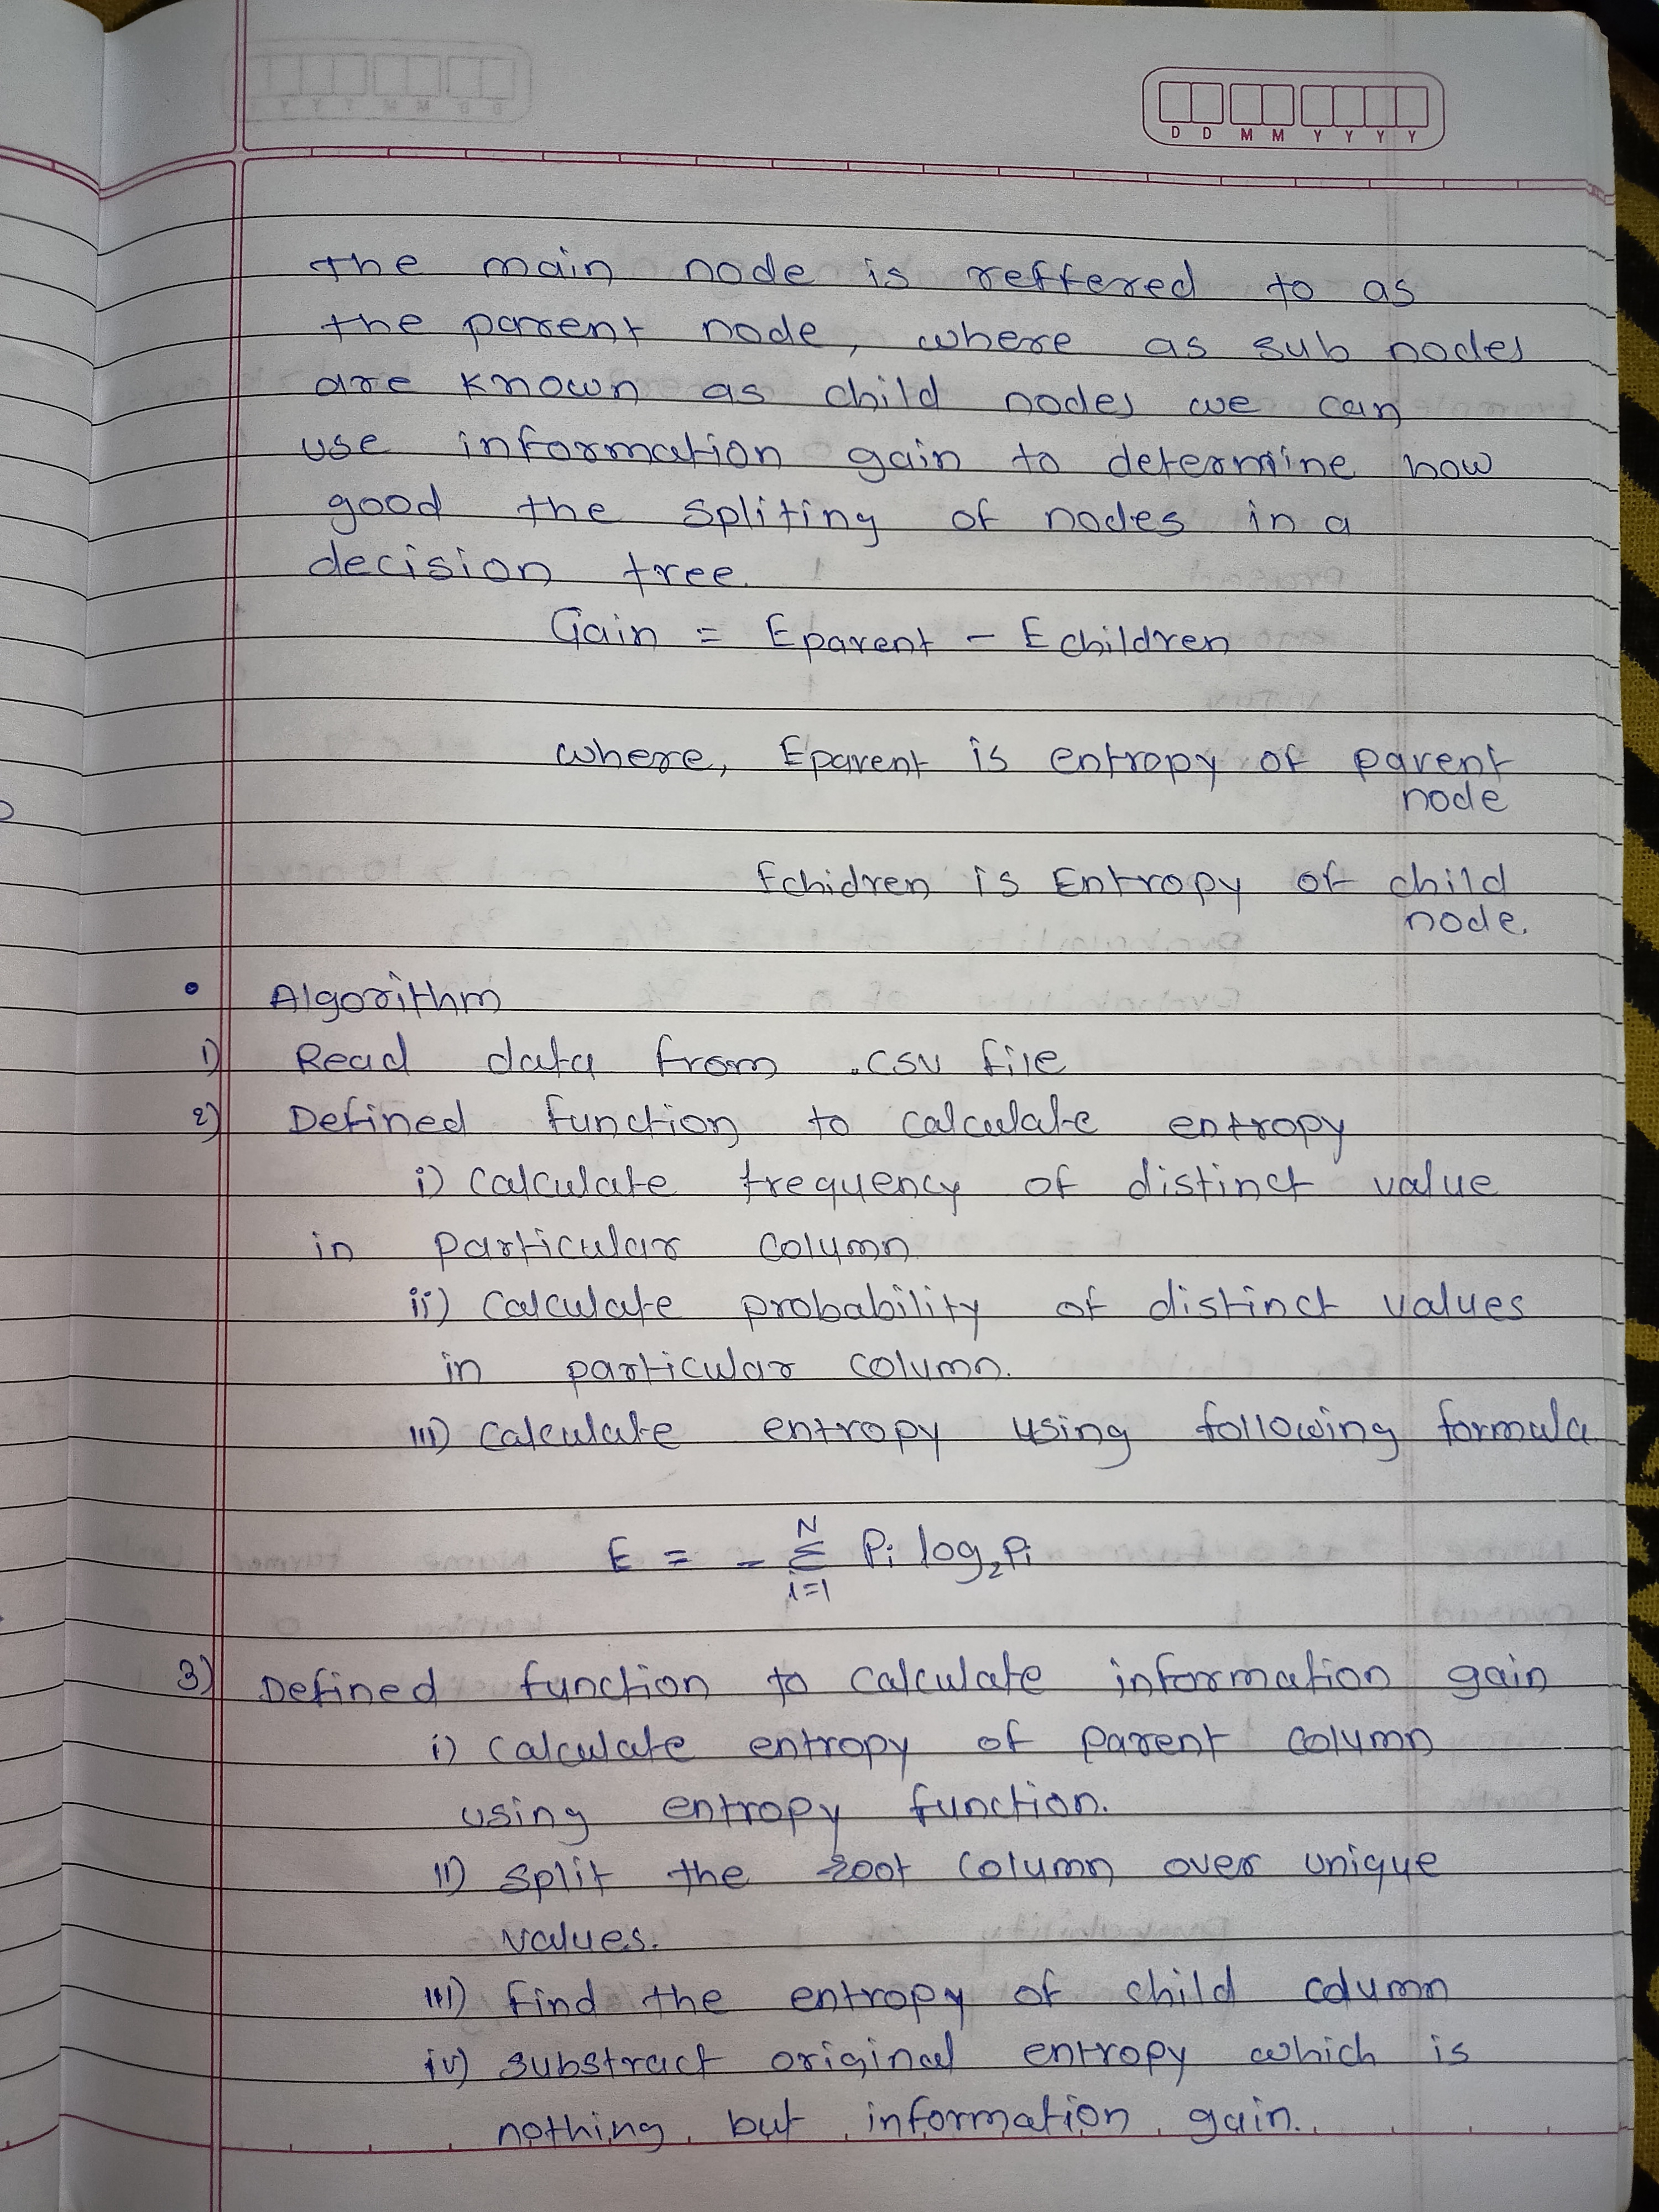 D D M M Y Y Y Y
the main node is reffered to as
the parent node, where as sub nodes
are known as child nodes we can
use information gain to determine how
good the spliting of nodes in a
decision tree.
Gain = Eparent - Echildren
where, Eparent is entropy of parent
node
Echidren is Entropy of child
node.
• Algorithm
1) Read data from .csv file
2) Defined function to calculate entropy
i) calculate frequency of distinct value
in particular column
ii) calculate probability of distinct values
in particular column.
iii) calculate entropy using following formula
E = - N Σ i=1 Pi log₂ Pi
3) Defined function to calculate information gain
i) calculate entropy of parent column
using entropy function.
ii) split the root column over unique
values.
iii) find the entropy of child column
iv) substract original entropy which is
nothing but information gain.